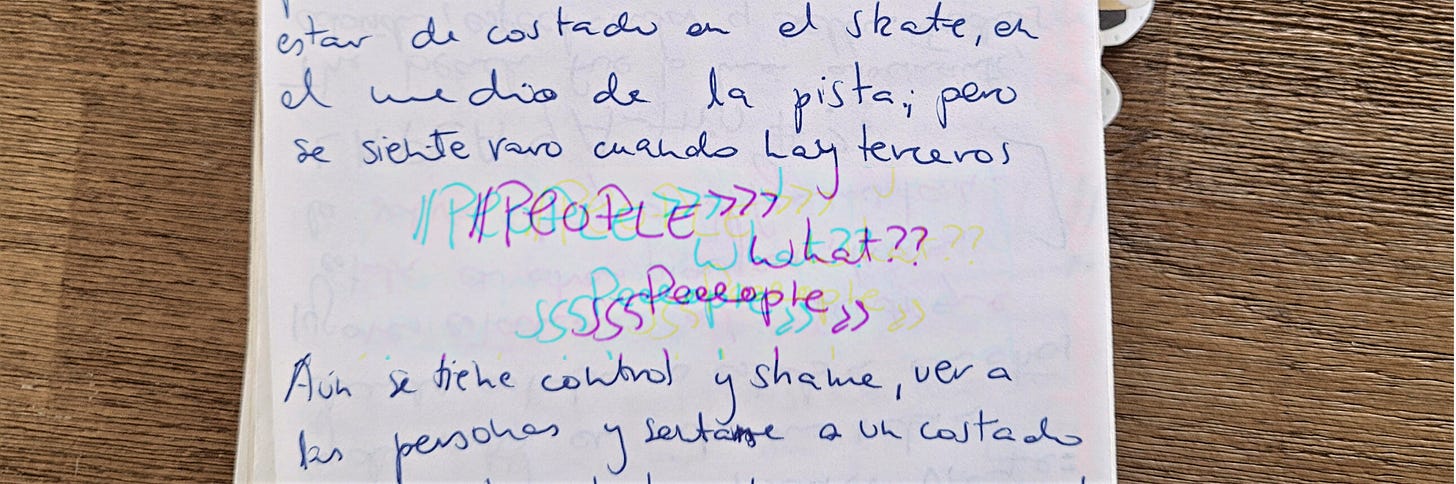 estar de costado en el skate, en
el medio de la pista; pero
se siente raro cuando hay terceros
//PEOPLE >>>>
What??
sssss Peeeople >>
Aún se tiene control y shame, ver a
las personas y sentarme a un costado